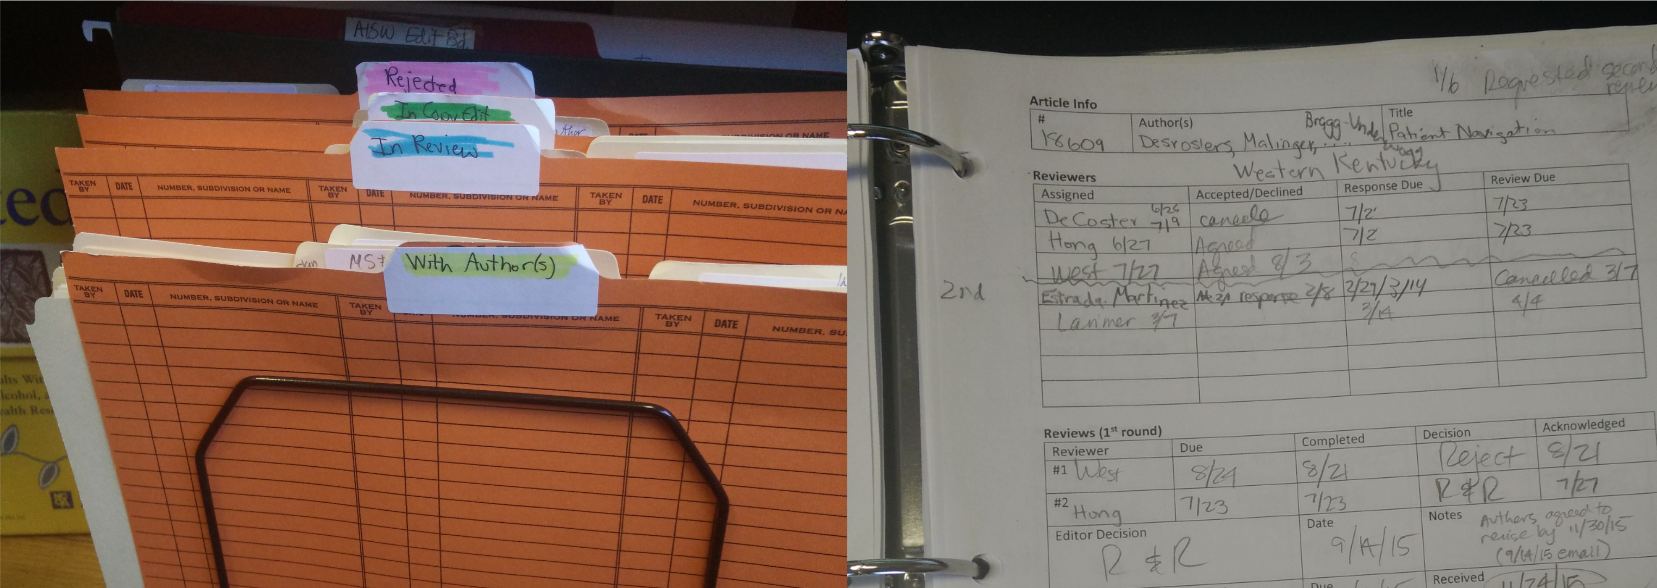 AJSW Edit Bd.
Rejected
In CopyEdit
In Review
TAKEN BY DATE NUMBER, SUBDIVISION OR NAME TAKEN BY DATE NUMBER, SUBDIVISION OR NAME TAKEN BY DATE NUMBER, SUBDIVISION OR NA
With Author(s)
TAKEN BY DATE NUMBER, SUBDIVISION OR NAME TAKEN BY NUMBER, SUBDIVISION OR NAME TAKEN BY DATE NUMBER, SU
1/6 Requested second
Article Info
# Author(s) Title
18609 Desrosiers, Malinger, ..... Bragg-Underwood Patient Navigation
Western Kentucky
Reviewers
Assigned Accepted/Declined Response Due Review Due
DeCoster 6/25 7/9 cancele 7/2 7/23
Hong 6/27 Agreed 7/2 7/23
West 7/27 Agreed 8/3
2nd Estrada-Martinez No response 2/8 2/29/3/14 Cancelled 3/7
Larimer 3/7 3/14 4/4
Reviews (1st round)
Reviewer Due Completed Decision Acknowledged
#1 West 8/24 8/21 Reject 8/21
#2 Hong 7/23 7/23 R & R 7/27
Editor Decision Date Notes
R & R 9/14/15 Authors agreed to
revise by 11/30/15
(9/14/15 email)
Due Received 11/24/15